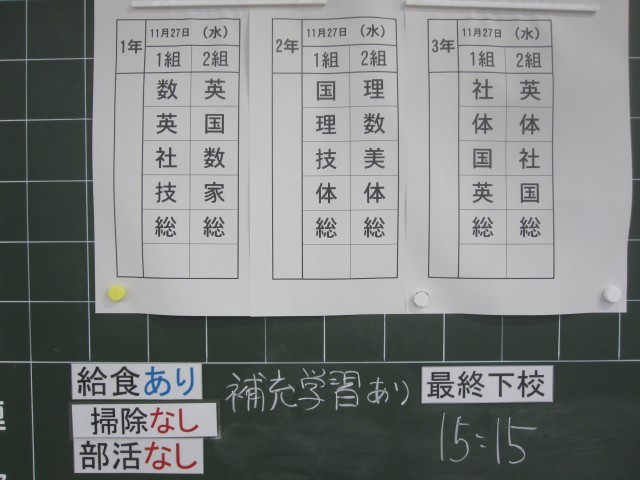 1年 11月27日 (水)
1組 2組
数 英
英 国
社 数
技 家
総 総
2年 11月27日 (水)
1組 2組
国 理
理 数
技 美
体 体
総 総
3年 11月27日 (水)
1組 2組
社 英
体 体
国 社
英 国
総 総
給食あり
掃除なし
部活なし
補充学習あり
最終下校
15:15